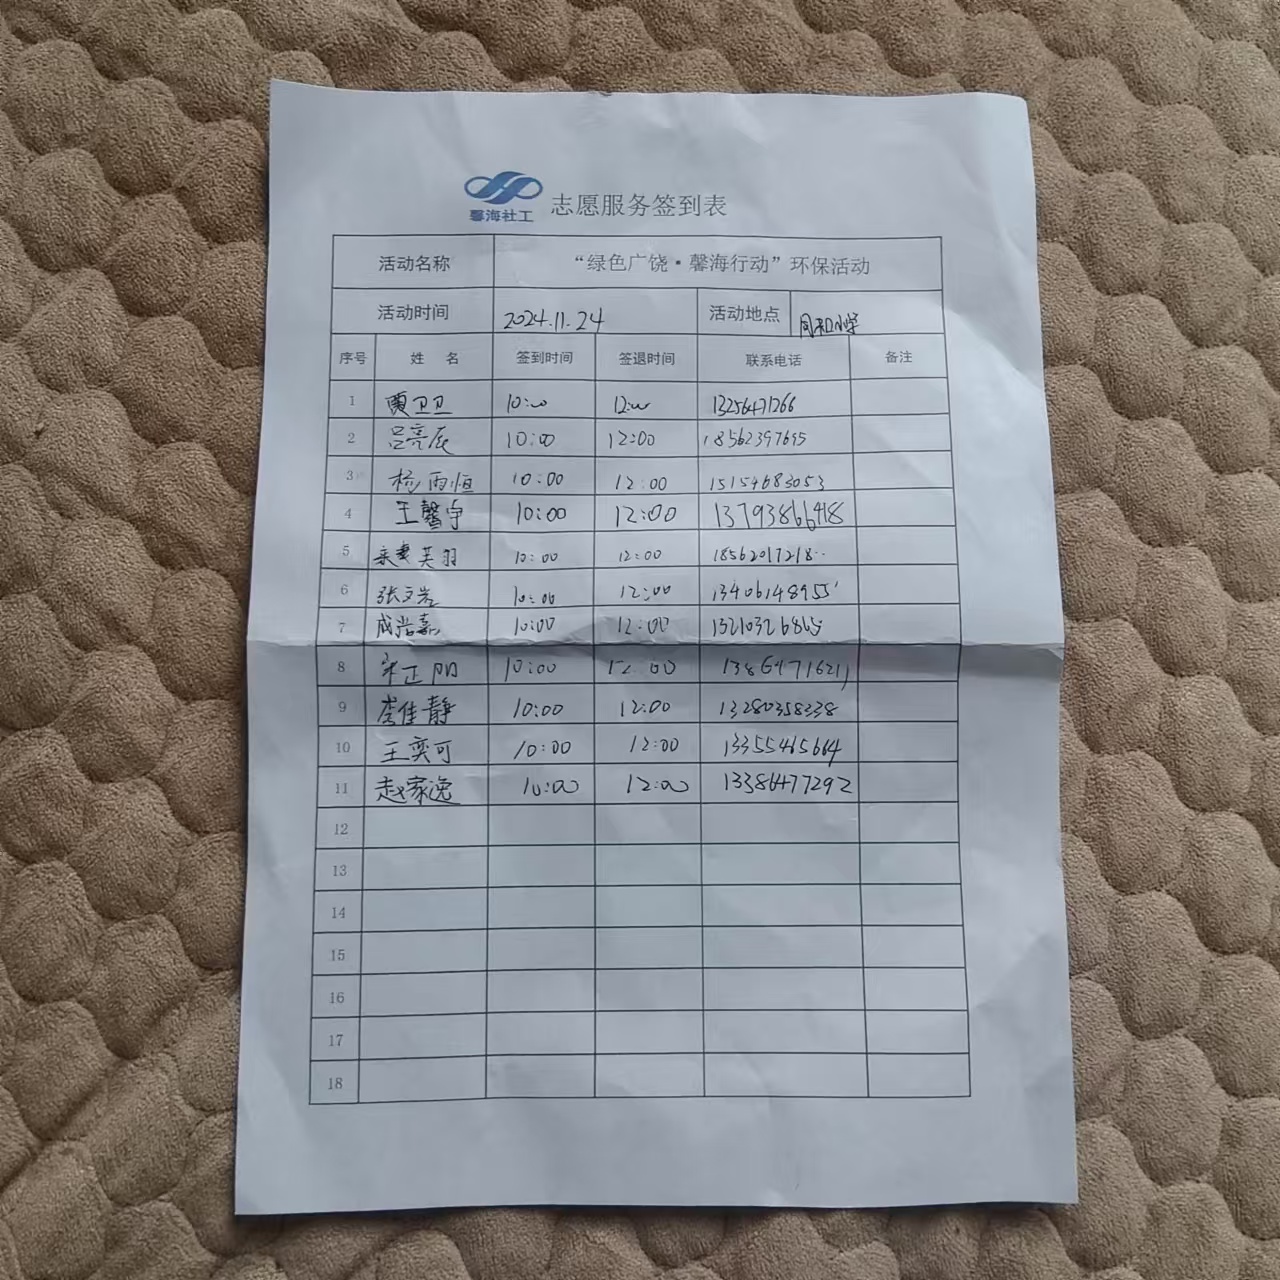 馨海社工 志愿服务签到表
活动名称 “绿色广饶·馨海行动”环保活动
活动时间 2024.11.24 活动地点 同和小学
序号 姓 名 签到时间 签退时间 联系电话 备注
1 贾卫卫 10:00 12:00 13256471266
2 吕亮辰 10:00 12:00 18562397695
3 杨雨恒 10:00 12:00 15154683053
4 王馨宇 10:00 12:00 13793866418
5 10:00 12:00 18562017218
6 张文岩 10:00 12:00 13406148955
7 成浩嘉 10:00 12:00
8 宋正阳 10:00 12:00 13864716211
9 李佳静 10:00 12:00 13280358338
10 王奕可 10:00 12:00 13355465664
11 赵家逸 10:00 12:00 13386477292
12
13
14
15
16
17
18